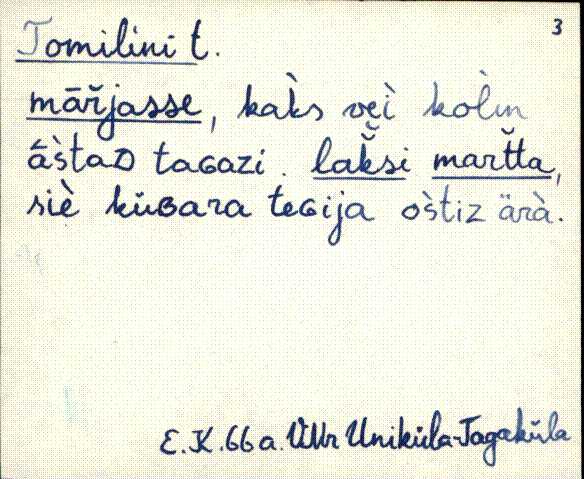 3
Tomilini t.
mār̆jasse, kak̀s vei̯ kol̀m
ās̀taᴅ taɢazi. lak̆si mar̆tta,
siè küʙara teɢija os̀tiz ärà.
E.K. 66 a. VMr Uniküla-Tagaküla